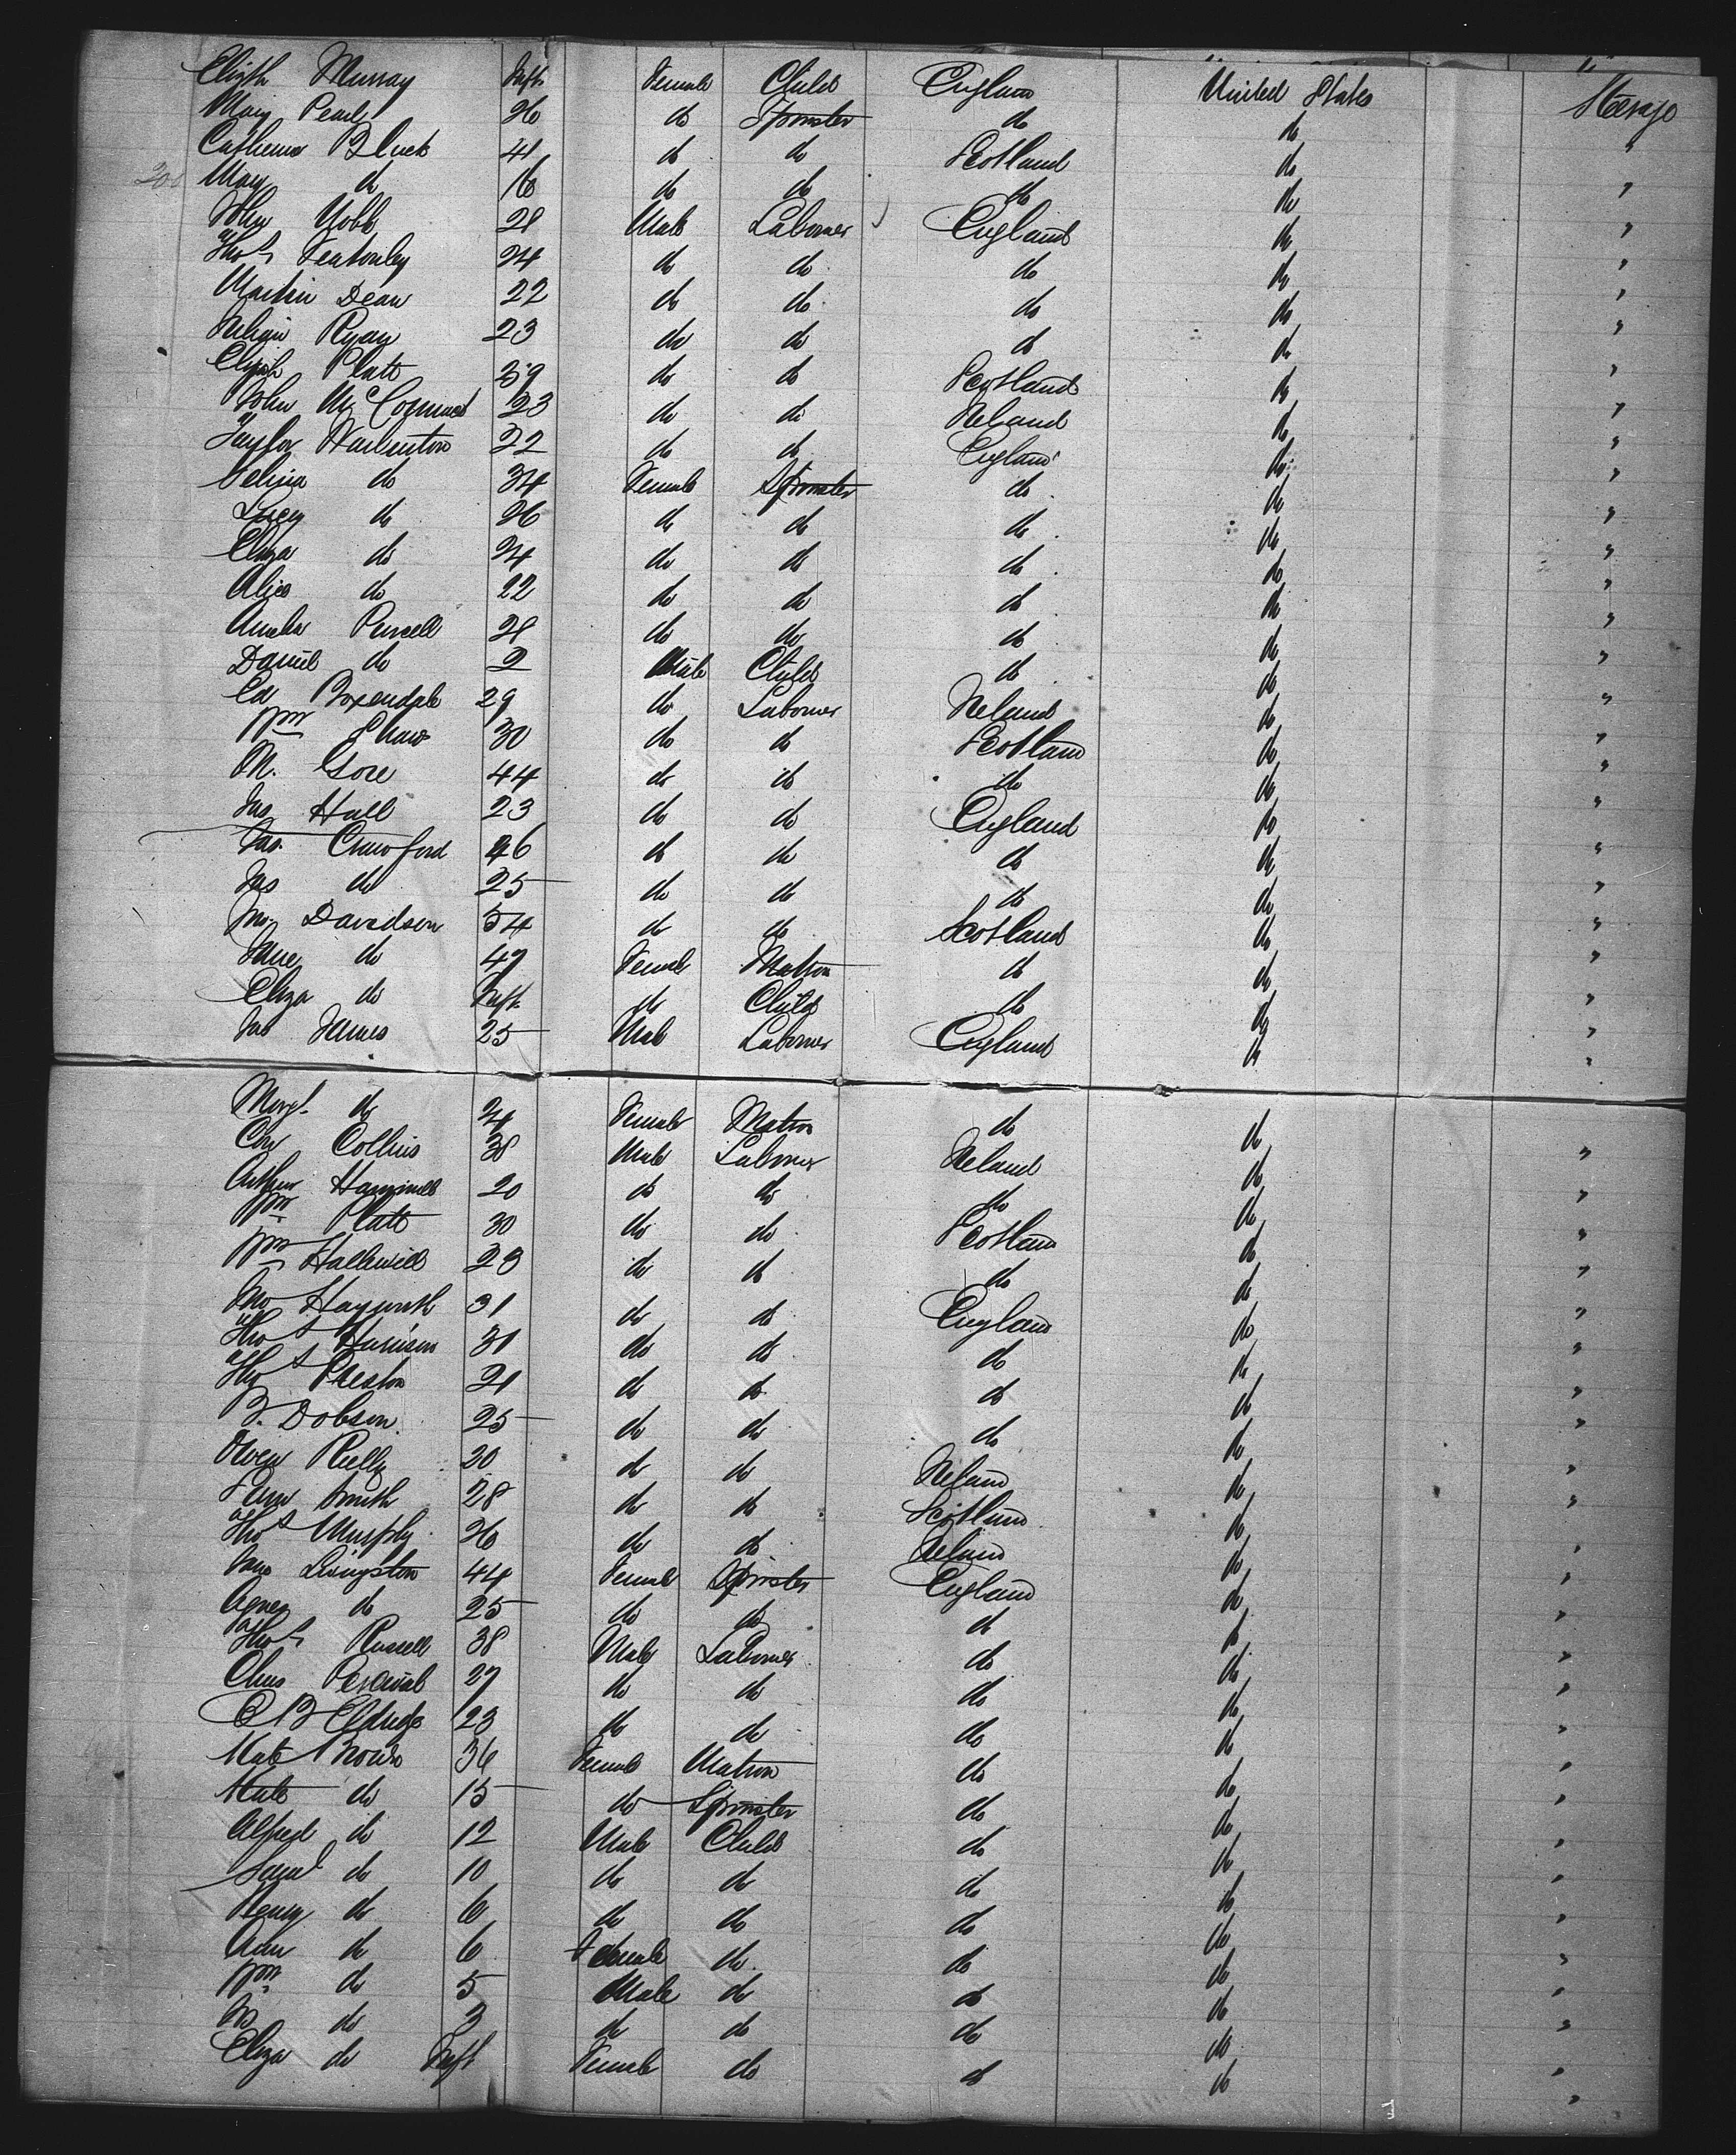 Elizth Murray Inft Female Child England United States Steerage
Mary Pearl 26 do Spinster do do "
Catherine Black 41 do do Scotland do "
200 Mary do 16 do do do do "
John Nobb 28 Male Laborer England do "
Thos 24 do do do do "
Martin Dean 22 do do do do "
Ryan 23 do do do do "
Elijah Platt 39 do do Scotland do "
John McCormack 23 do do Ireland do "
Taylor Warburton 32 do do England do "
Selina do 34 Female Spinster do do "
Lucy do 26 do do do do "
Eliza do 24 do do do do "
Alice do 22 do do do do "
Amelia Purcell 28 do do do do "
Daniel do 2 Male Child do do "
Ed Boxendale 29 do Laborer Ireland do "
Wm Shaw 30 do do Scotland do "
M. Gore 44 do do do do "
Jas Hall 23 do do England do "
Jas. Crawford 46 do do do do "
Jas do 25 do do do do "
Jno. Davidson 54 do do Scotland do "
Jane do 47 Female Matron do do "
Eliza do Inft do Child do do "
Jas James 25 Male Laborer England do "
Margt do 24 Female Matron do do "
Collins 38 Male Laborer Ireland do "
Arthur Hammell 20 do do do do "
Wm Platt 30 do do Scotland do "
Wm Halliwill 23 do do do do "
Jno Hayworth 31 do do England do "
Thos Harrison 31 do do do do "
Thos Preston 21 do do do do "
B. Dobson 25 do do do do "
Owen Reilly 20 do do Ireland do "
Smith 28 do do Scotland do "
Thos Murphy 26 do do Ireland do "
Livingston 44 Female Spinster England do "
Agnes do 25 do do do do "
Thos Russell 38 Male Laborer do do "
Chas Percival 27 do do do do "
C B Eldridge 23 do do do do "
Kate 36 Female Matron do do "
Kate do 15 do Spinster do do "
Alfred do 12 Male Child do do "
Saml do 10 do do do do "
Henry do 6 do do do do "
Ann do 6 Female do do do "
Wm do 5 Male do do do "
do 3 do do do do "
Eliza do Inft Female do do do "